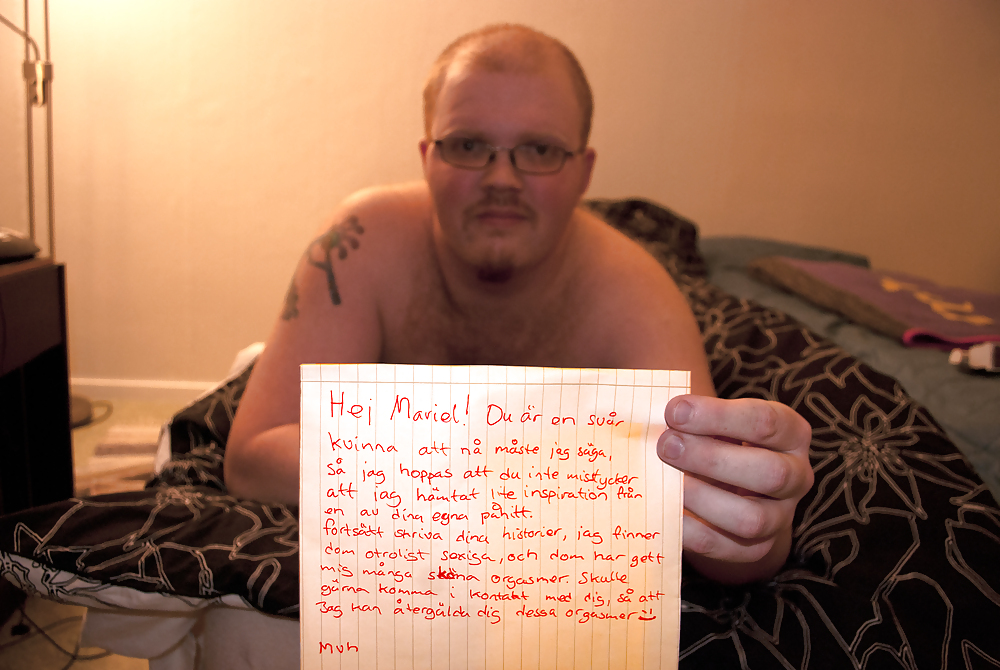 Hej Mariel! Du är en svår
kvinna att nå måste jag säga,
så jag hoppas att du inte misstycker
att jag hämtat lite inspiration från
en av dina egna påhitt.
fortsätt skriva dina historier, jag finner
dom otrolist sexiga, och dom har gett
mig många sköna orgasmer. Skulle
gärna komma i kontakt med dig, så att
Jag kan återgälda dig dessa orgasmer =)
Mvh